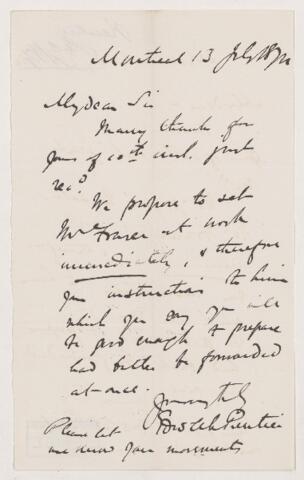 Montreal 13 July 187
My dear Sir
Many thanks for
yours of 10th inst. just
rec.d
We propose to set
Mr Fraser at work
immediately, & therefore
your instructions to him
which you say you will
be good enough to prepare
had better be forwarded
at once.
Yours truly
Please let
me know your movements